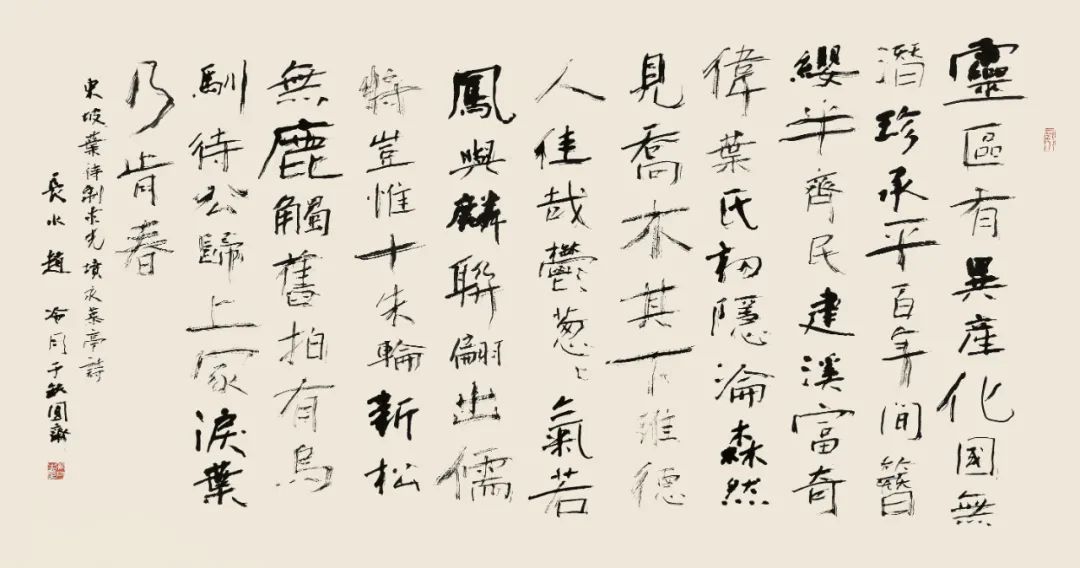 靈區有異產化國無
潛珍承平百年間簪
纓半齊民建溪富奇
偉葉氏初隱淪森然
見喬木其下維德
人佳哉鬱葱々氣若
鳳與麟聯翩出儒
將豈惟十朱輪新松
無鹿觸舊柏有烏
馴待公歸上冢淚葉
乃肯春
東坡葉待制求先墳永慕亭詩
長水趙冷月于缺圓齋